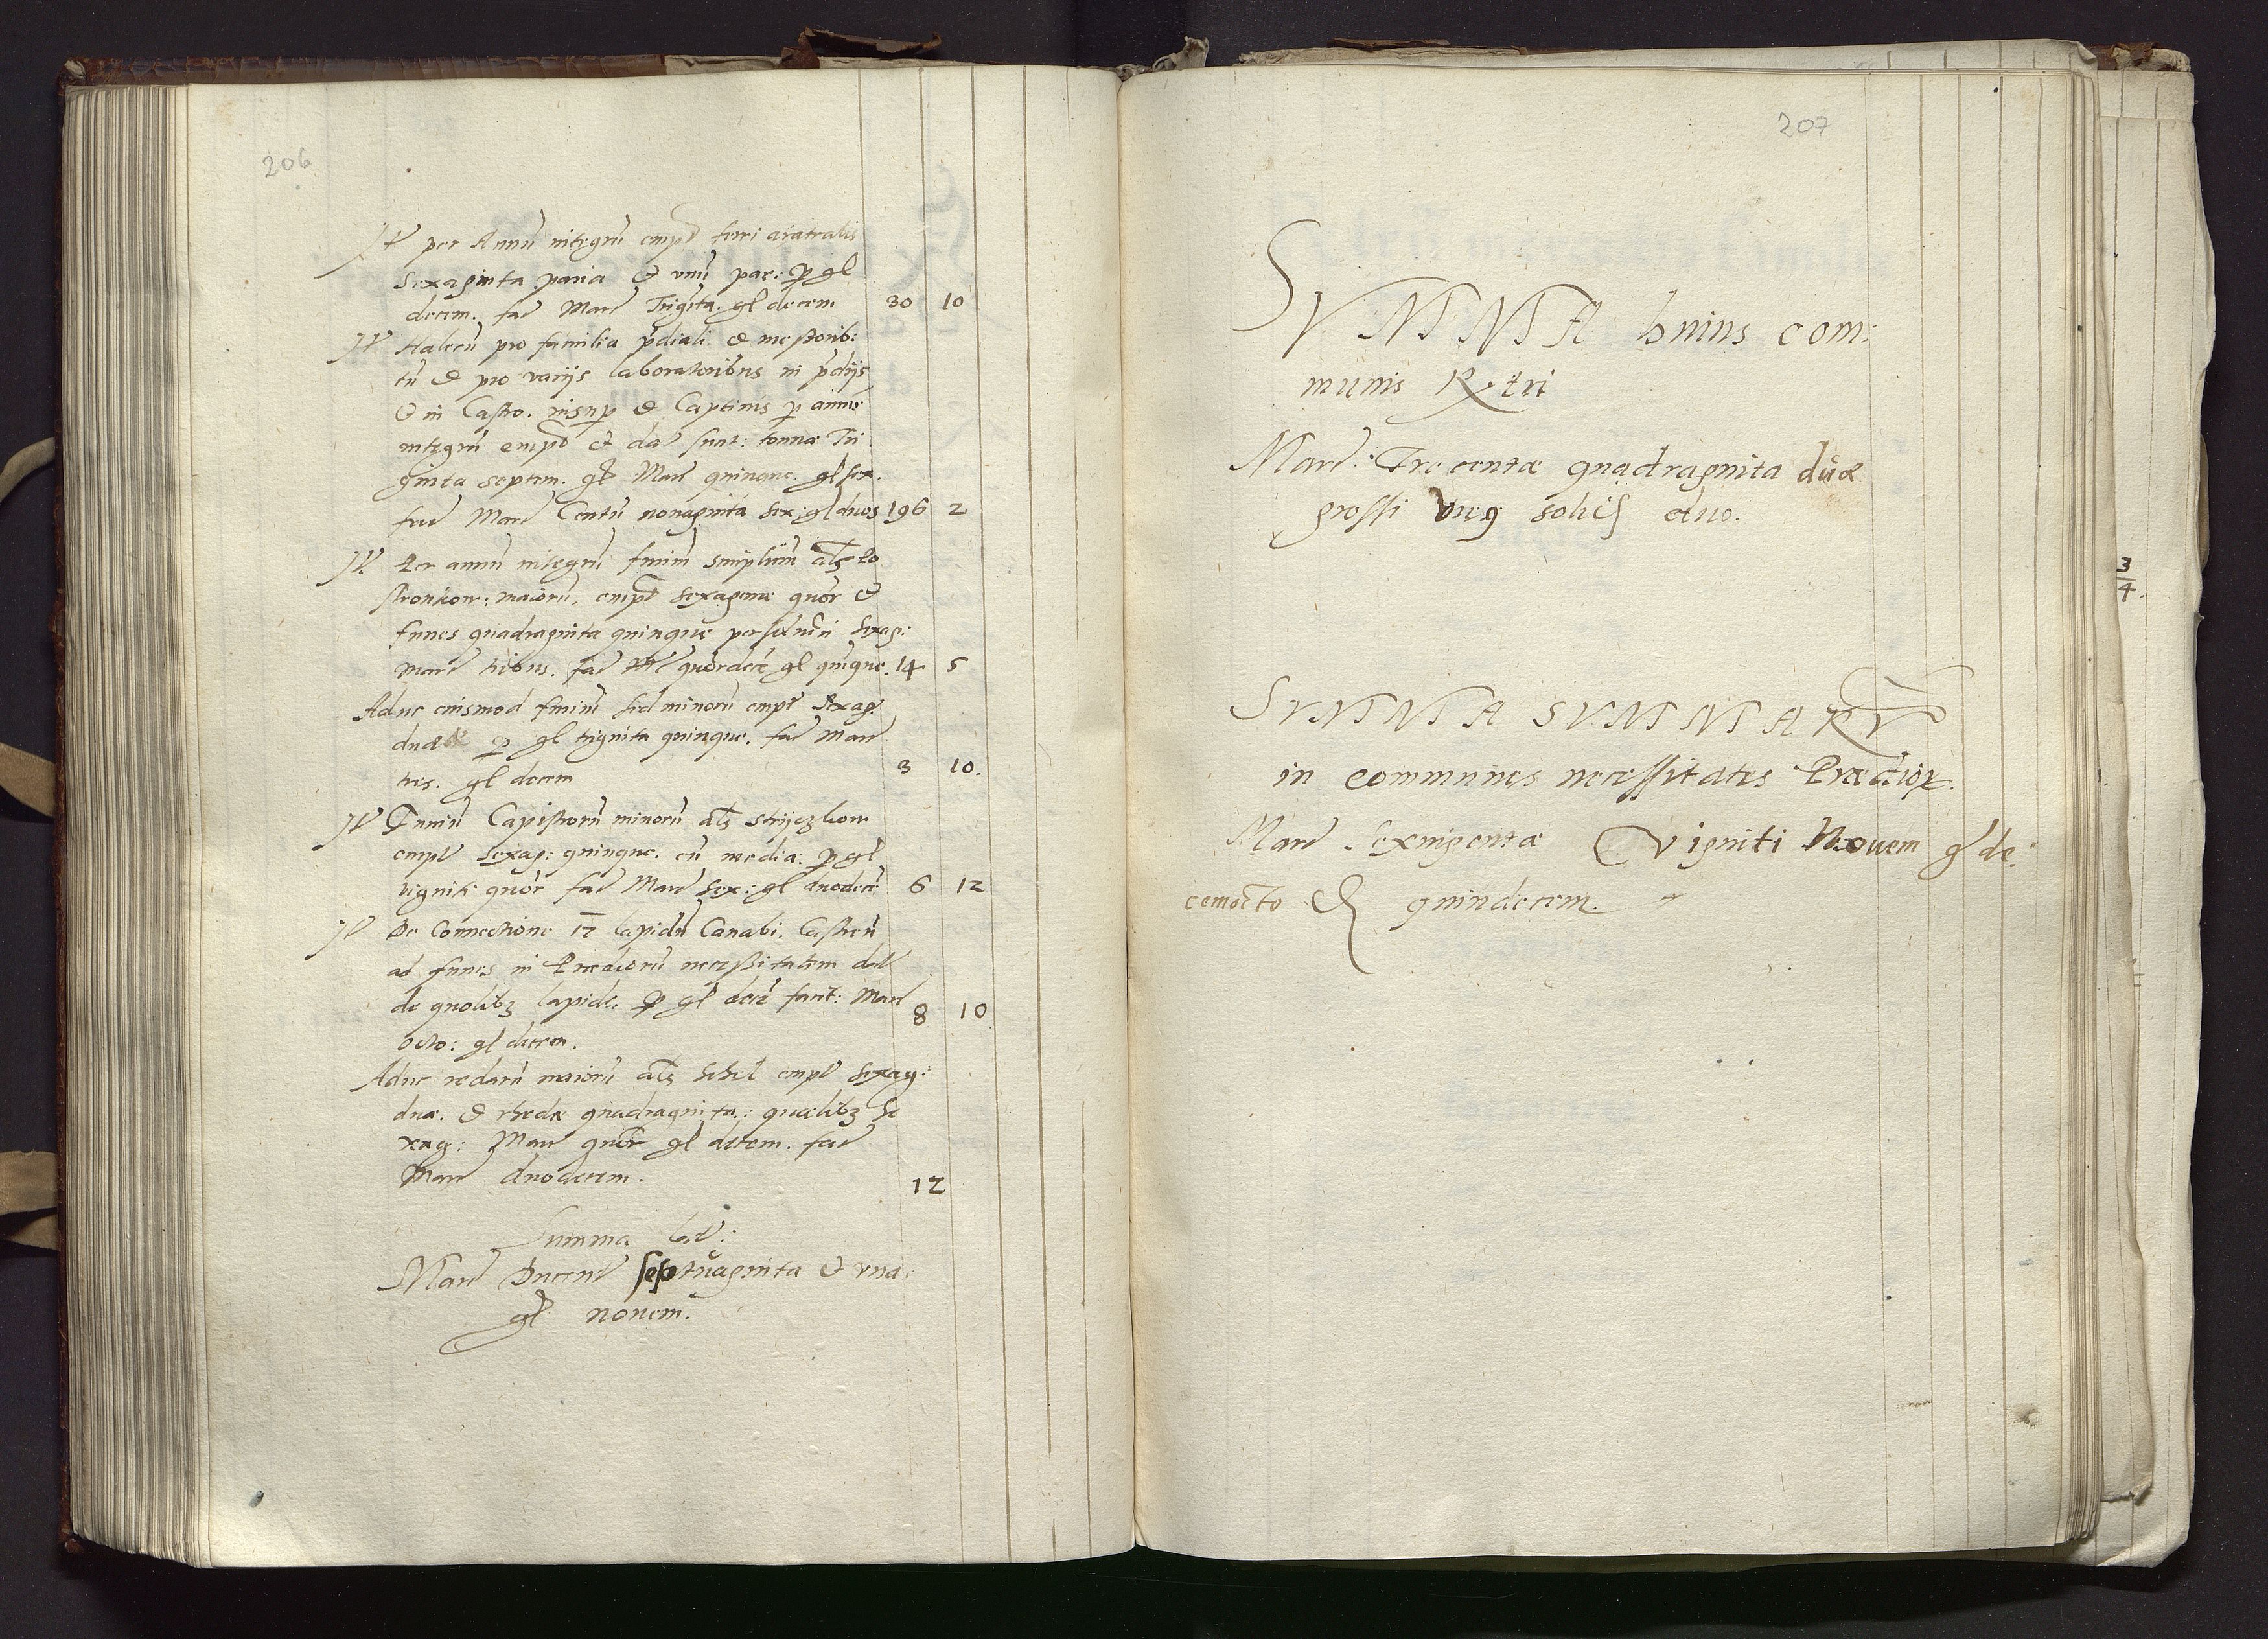 206
It per Annū integrū empt ferri aratralis
Sexaginta paria et vnū par: p gl
decem. fac Marc Triginta. gl decem 30 10
It Halecū pro familia pdiali et messorib:
tū et pro varijs laboratoribus in pdijs
Et in Castro. insup et Captiuis p annū
integrū empt et dat sunt: tonnæ Tri
ginta septem. gl Marc quinque. gl sex.
fac Marc Centū nonaginta sex: gl duos 196 2
It Per annū integrū funiū simpliciū als Po
stronkow: maiorū, empt Sexagenæ quor et
funes quadraginta quinque persoluēn Sexag:
marc tribus. fac Mc quordecē gl quīque. 14 5
Adhuc eiusmod funiū sed minorū empt Sexag.
duæ p gl triginta quinque. fac Marc
tres. gl decem 3 10.
It Funiū Capistrorū minorū als strijczkow
empt sexag: quinque. cū media. p gl
viginti quor fac Marc sex: gl duodecē 6 12
It De Connectione 17 lapidū Canabi. Castren
ad funes in Prædiorū necessitatem dat
de quolibz lapide. p gl decē faciūt: Marc
octo: gl decem. 8 10
Adhuc redarū maiorū als sehel empt sexag:
duæ. et rhedæ quadraginta: quælibz se
xag: Marc quor gl decem. fac
Marc duodecem. 12
Summa lat:
Marc Ducent septuaginta et vna
gl nouem.
207
SVMMA huius com:
munis Rxtri
Marc: Trecentæ quadraginta duæ
grossi vnus solid duo.
SVMMA SVMMARV
in communes necessitates Prædior.
Marc. Sexingentæ Viginti Nouem g de:
cemocto & quindecem.
3
4.